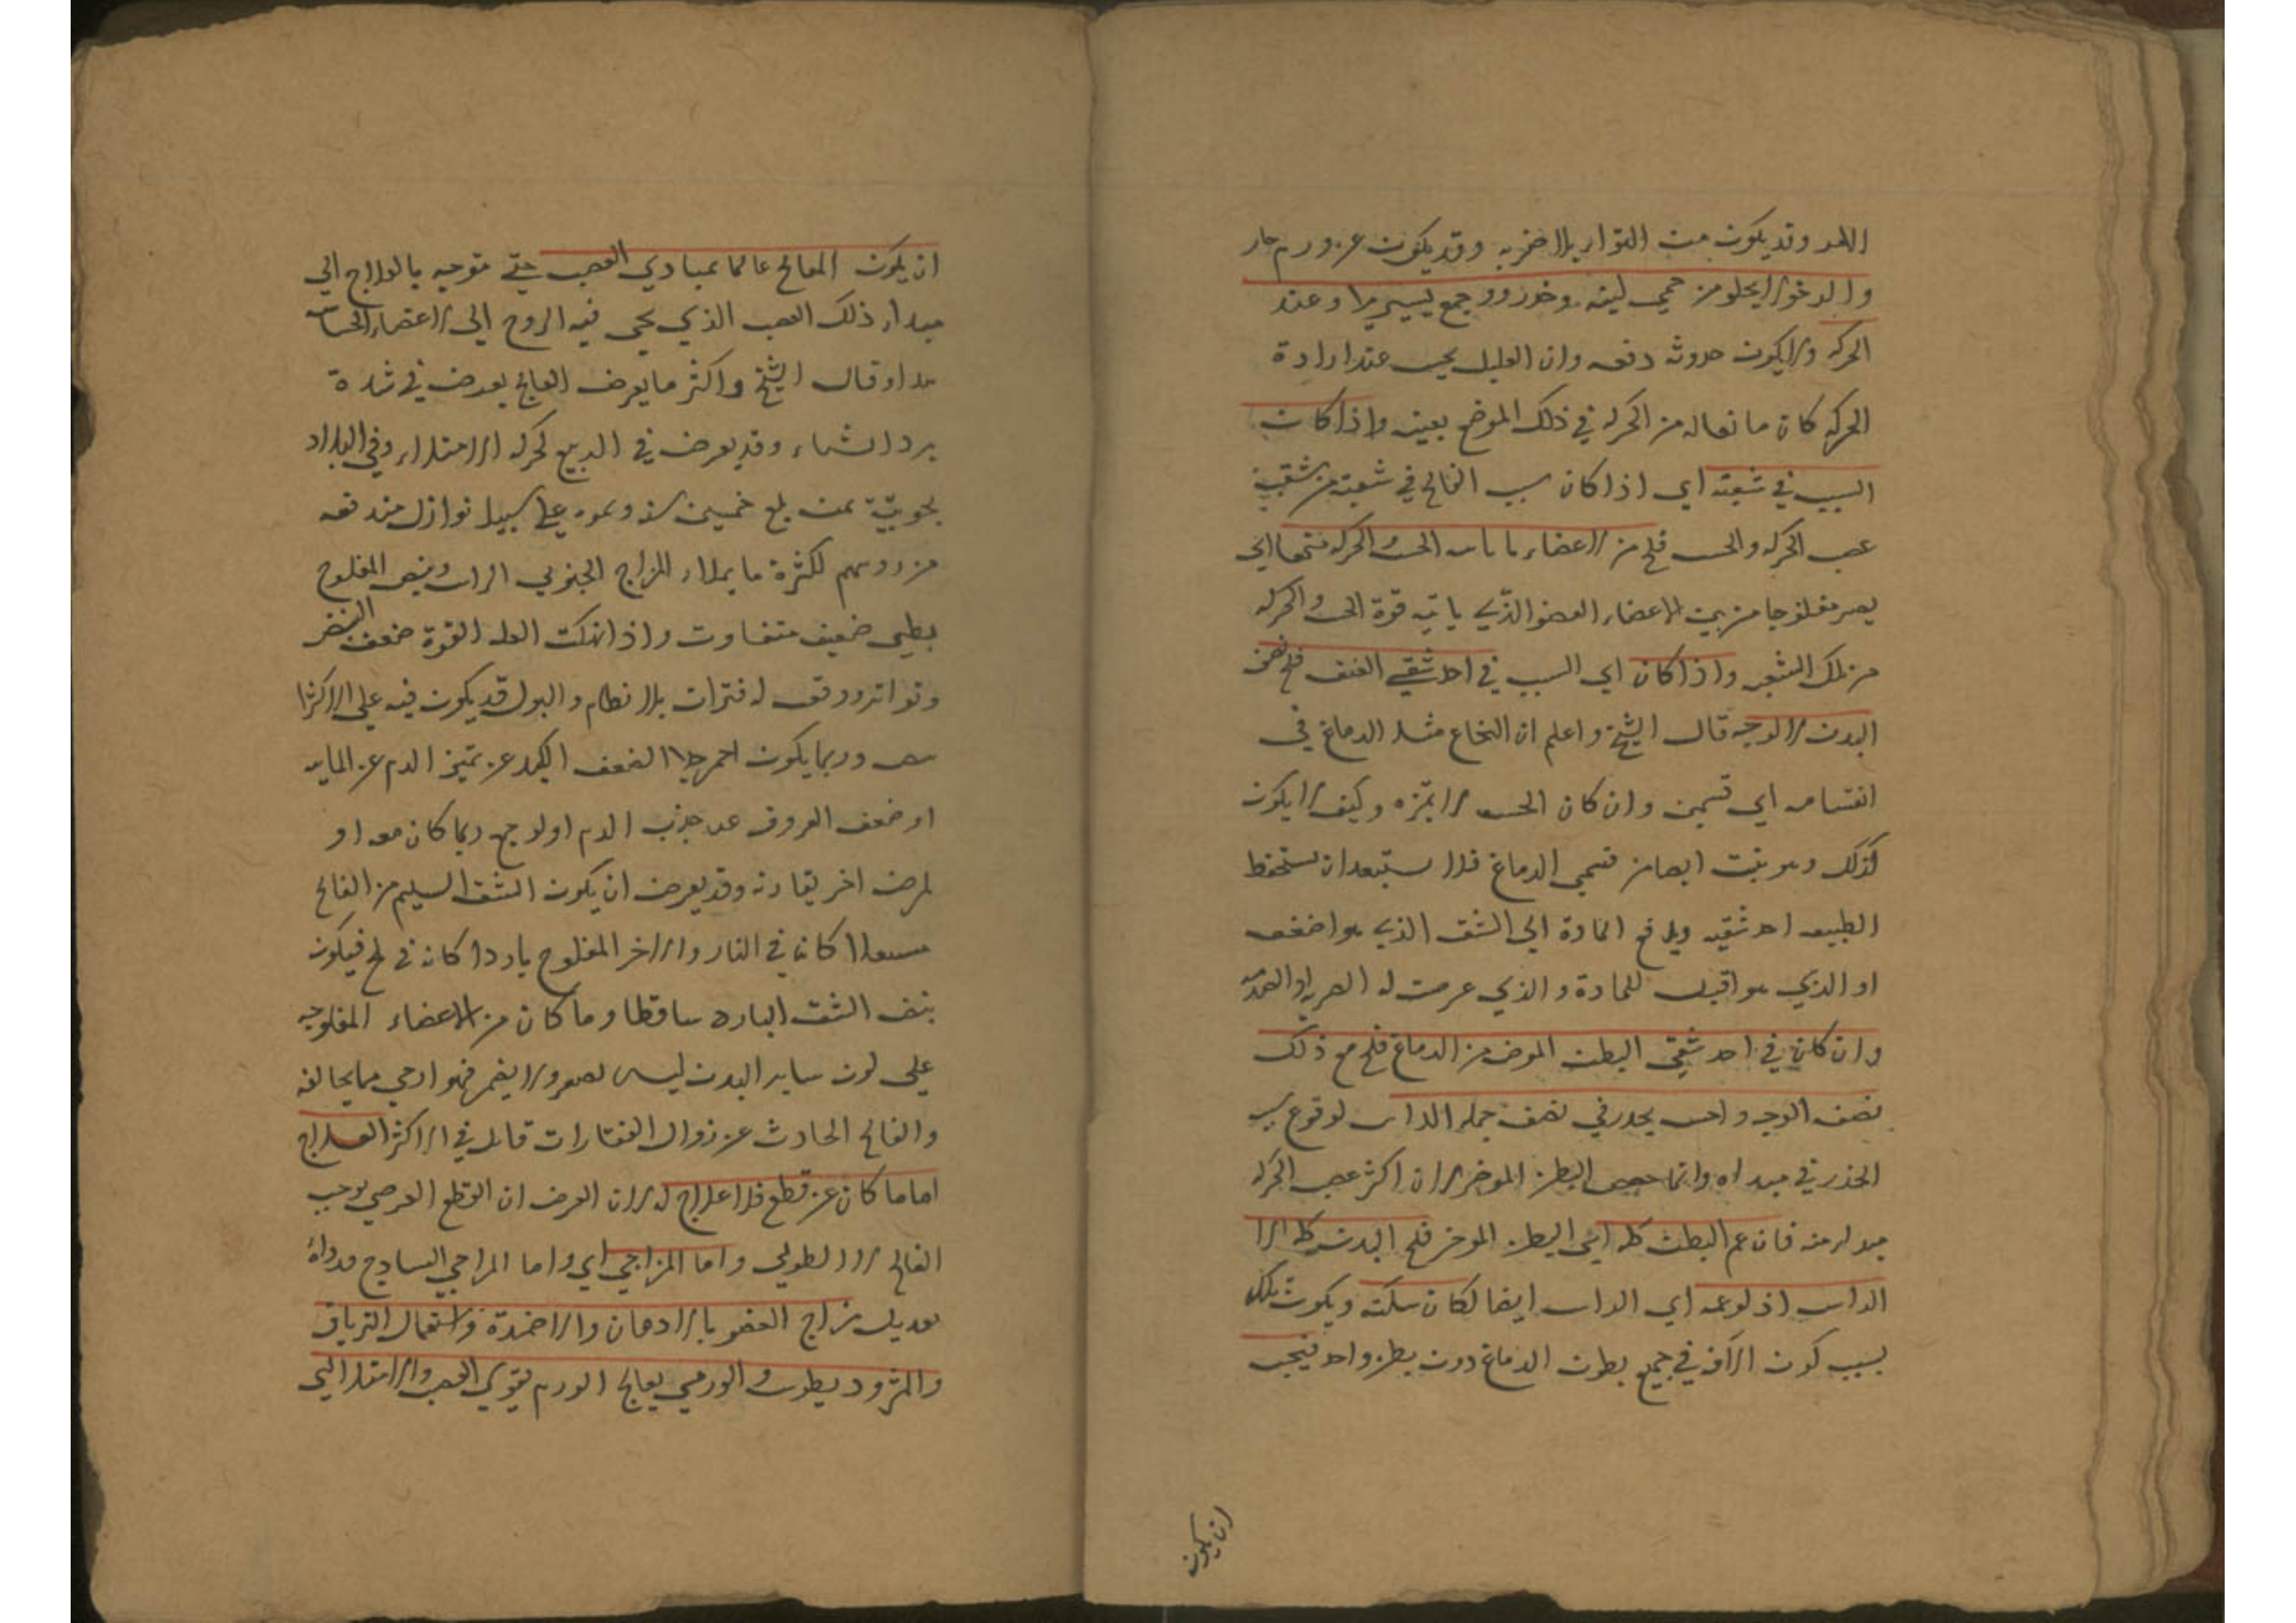 وقد يكون من التواء بلا ضربه وقد يكون عن ورم حار
والرخو لا يخلو من حمى لينه وخدر ووجع يسير بلا وعند
الحركه ولا يكون حدوثه دفعه وان العليل يحس عند ارادة
الحركه كان مانعا له من الحركه في ذلك الموضع بعينه واذا كان
السبب في شعبة اي اذا كان سبب الفالج في شعبة من شعب
عصب الحركه والحس فلج من الاعضاء ما ياتيه الحس والحركه منها اي
يصير مفلوجا من بين الاعضاء العضو الذي ياتيه قوة الحس والحركه
من تلك الشعبه واذا كان اي السبب في احد شقي العنق فلج نصف
البدن الا الوجه قال الشيخ واعلم ان النخاع مثل الدماغ في
انقسامه اي قسمين وان كان الحس لا يميزه وكيف لا يكون
كذلك وهو ينبت ايضا من قسمي الدماغ فلا يستبعد ان تستحفظ
الطبيعه احد شقيه ويدفع المادة الى الشق الذي هو اضعف
او الذي هو اقبل للمادة والذي عرضت له الضربه او الصدمه
وان كان في احد شقي البطن الموخر من الدماغ فلج مع ذلك
نصف الوجه واحس بخدر في نصف جملة الراس لوقوع سبب
الخدر في مبداه وانما خصص البطن الموخر لان اكثر عصب الحركه
مبداه منه فان عم البطن كله اي البطن الموخر فلج البدن كله الا
الراس اذ لو عمه اي الراس ايضا لكان سكتة ويكون ذلك
بسبب كون الافه في جميع بطون الدماغ دون بطن واحد فيجب
ان يكون
ان يكون المعالج عالما بمبادي العصب حتى متوجه بالعلاج الى
مبداء ذلك العصب الذي يجي فيه الروح الى الاعضاء
وقال الشيخ واكثر ما يعرض الفالج يعرض في شدة
برد الشتاء وقد يعرض في الربيع لحركة الامتلاء وفي البلاد
الجنوبية لمن بلغ خمسين سنه ونحوه على سبيل نوازل مندفعه
من روسهم لكثرة ما يملاء المزاج الجنوبي الراس ونبض المفلوج
بطيء ضعيف متفاوت واذا انهكت العله القوة ضعف النبض
وتواتر ووقعت له فترات بلا نظام والبول قد يكون فيه على الاكثر
ابيض وربما يكون احمر جدا لضعف الكبد عن تميز الدم عن المايه
او ضعف العروق عن جذب الدم او لوجع ربما كان معه او
لمرض اخر يقارنه وقد يعرض ان يكون الشق السليم من الفالج
مشتعلا كانه في النار والاخر المفلوج باردا كانه في ثلج فيكون
نبض الشق البارد ساقطا وما كان من الاعضاء المفلوجه
على لون ساير البدن ليس يصغر ولا يضمر فهو ارجي مما يخالفه
والفالج الحادث عن زوال الفقارات قاتل في الاكثر العلاج
اما ما كان عن قطع فلا علاج له لان العرض ان القطع العرضي يوجب
الفالج لا الطولي واما المزاجي اي واما المزاجي الساذج فدواه
تعديل مزاج العضو بالادهان والاضمدة واستعمال الترياق
والمثروديطوس والورمي يعالج الورم بتقوي العصب والامتلائي